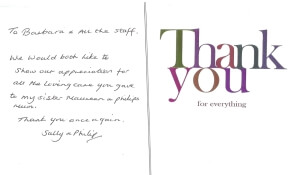 To Barbara & All the staff.
We would both like to
show our appreciation for
all the loving care you gave
to my sister Maureen & Philips
Mum.
Thank you once again.
Sally & Philip
Thank
you
for everything